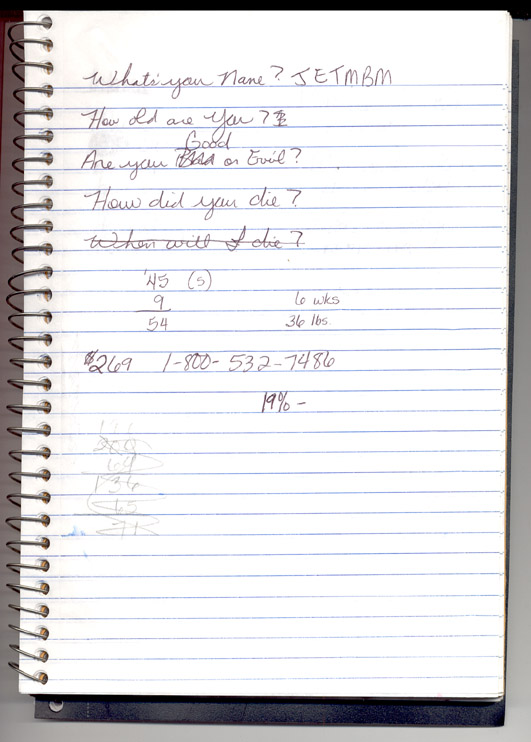 What's your Name? JETMBM
How old are you?
Good
Are you or Evil?
How did you die?
When will I die?
'45 (s)
9 6 wks
54 36 lbs.
$269 1-800-532-7486
19% -